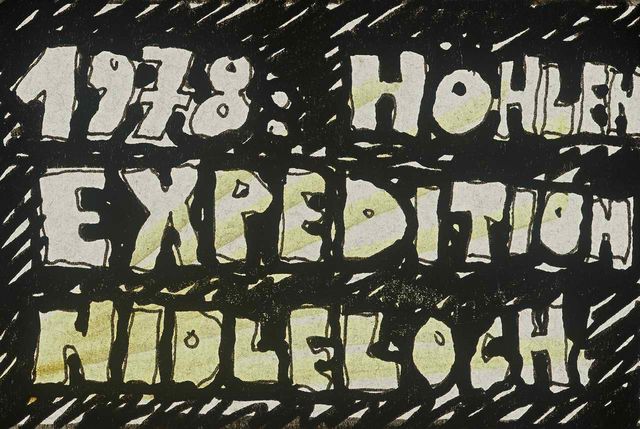 1978: HÖHLEN
EXPEDITION
NIDLELOCH